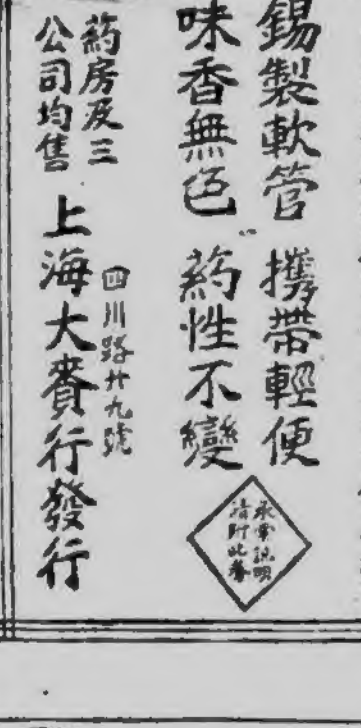 錫製軟管 攜帶輕便
味香無色 葯性不變
承索說明
請附此券
葯房及三
公司均售
四川路廿九號
上海大賚行發行